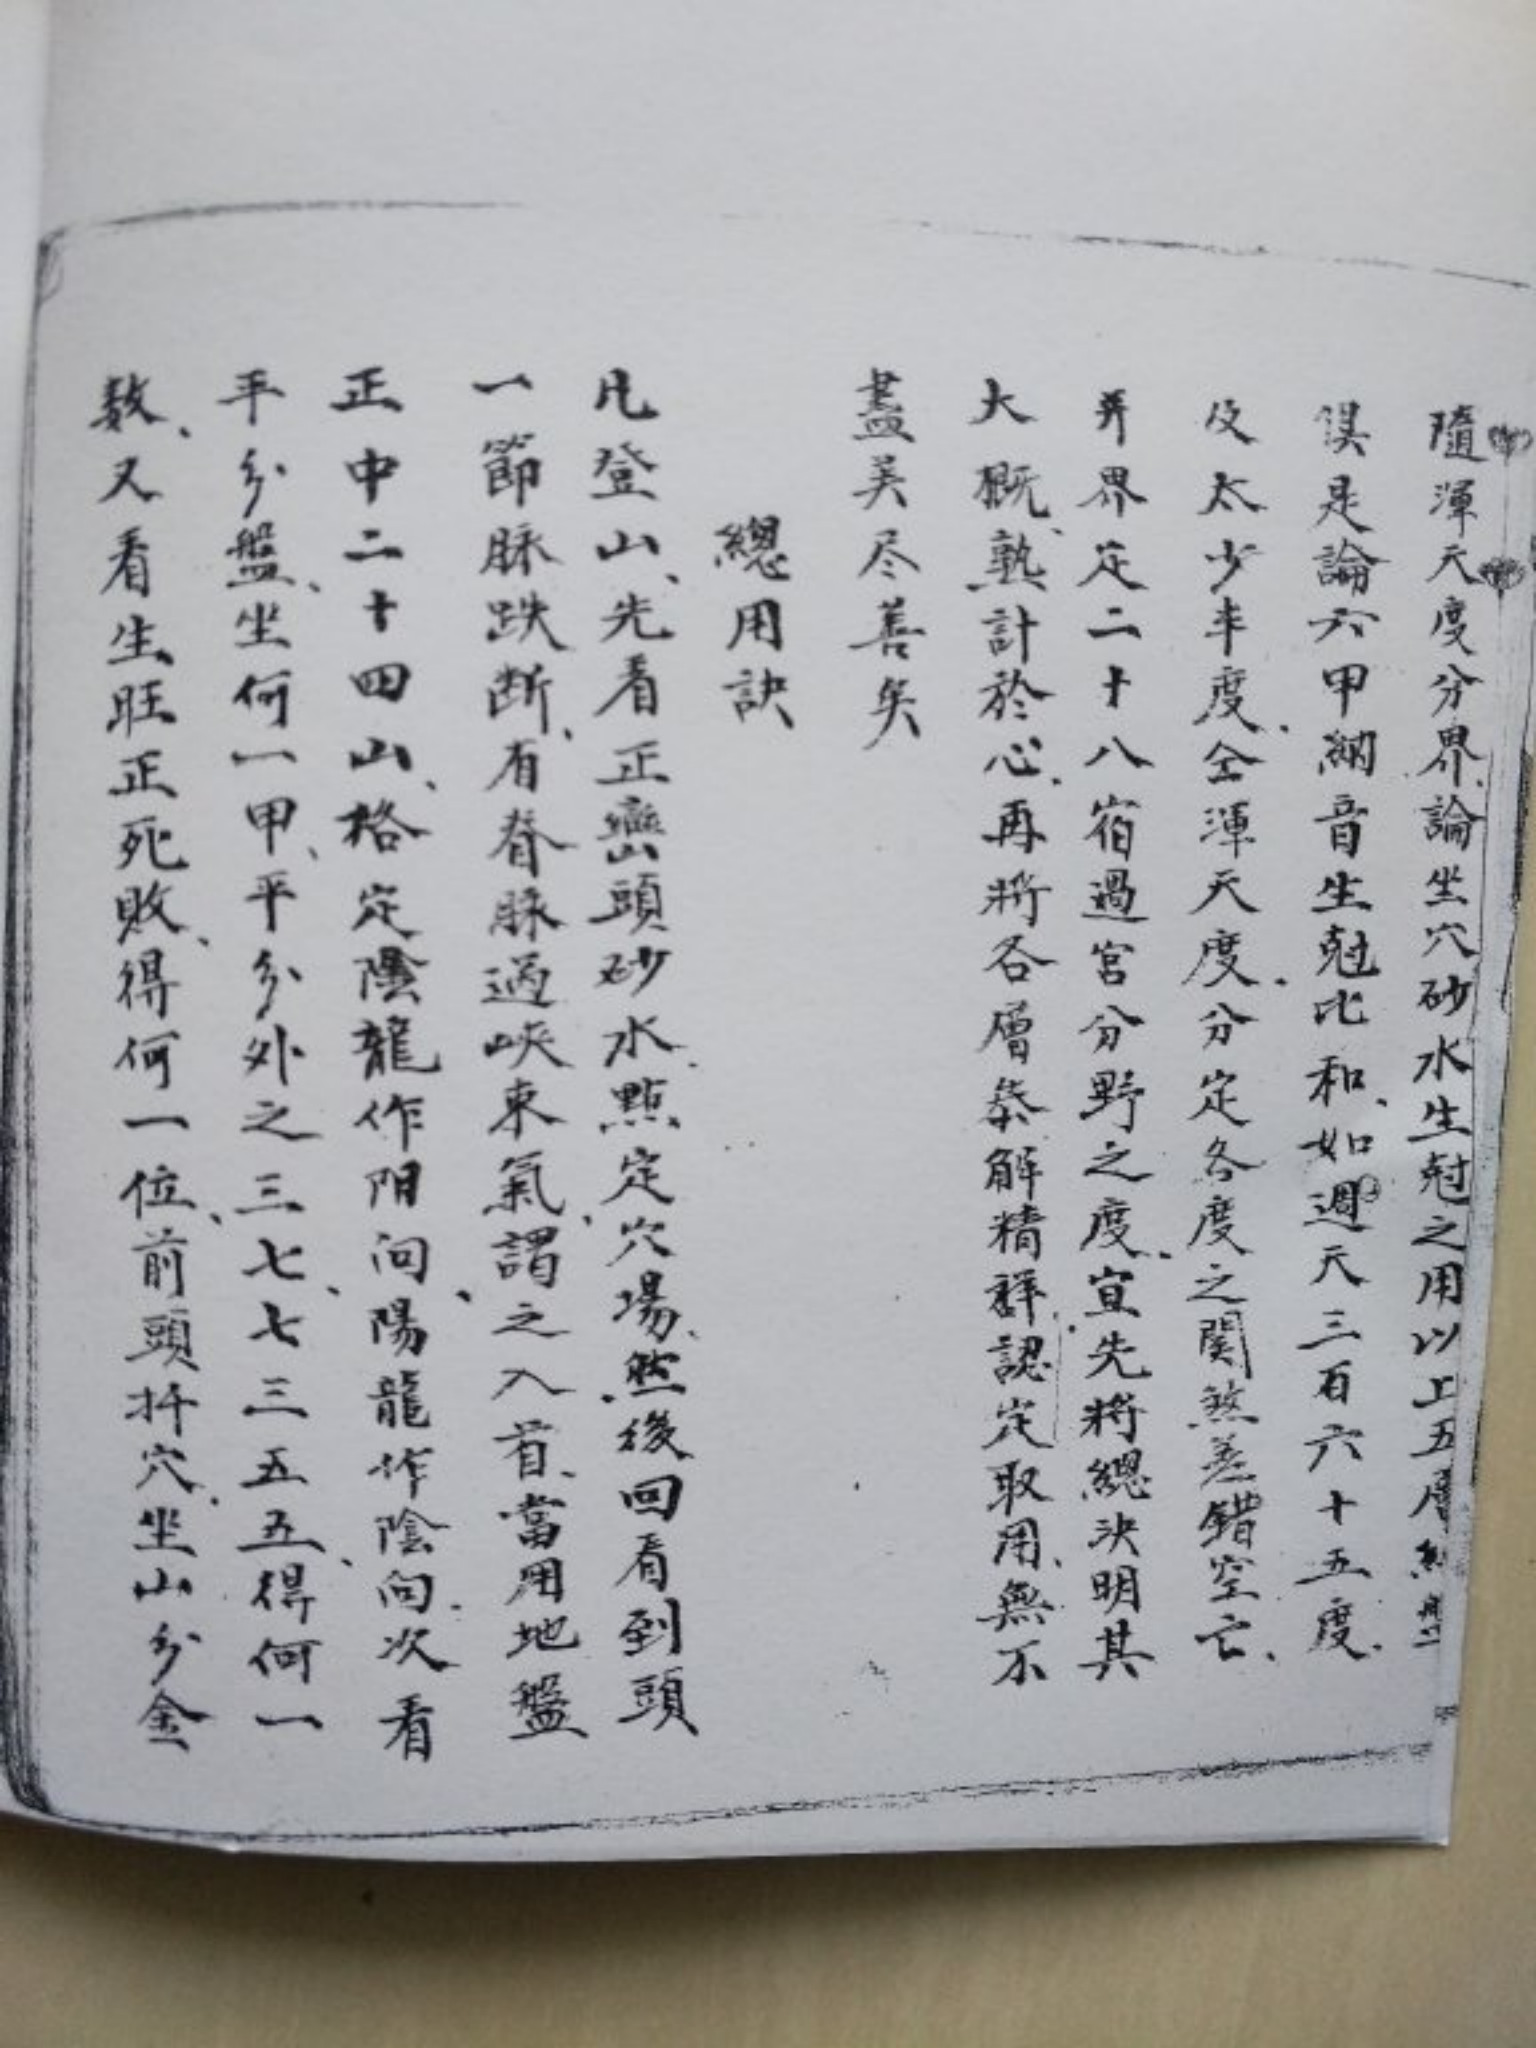 隨渾天度分界論坐穴砂水生尅之用以上五層
俱是論六甲納音生尅比和如週天三百六十五度
及太少半度全渾天度分定各度之関煞差錯空亡
并界定二十八宿過宮分野之度宜先將總決明其
大概熟計於心再將各層叅解精詳認定取用無不
盡美尽善矣
總用訣
凡登山先看正巒頭砂水點定穴場然後回看到頭
一節脉跌断有脊脉過峽束氣謂之入首當用地盤
正中二十四山格定陰龍作阴向陽龍作陰向次看
平分盤坐何一甲平分外之三七七三五五得何一
数又看生旺正死敗得何一位前頭扦穴坐山分金